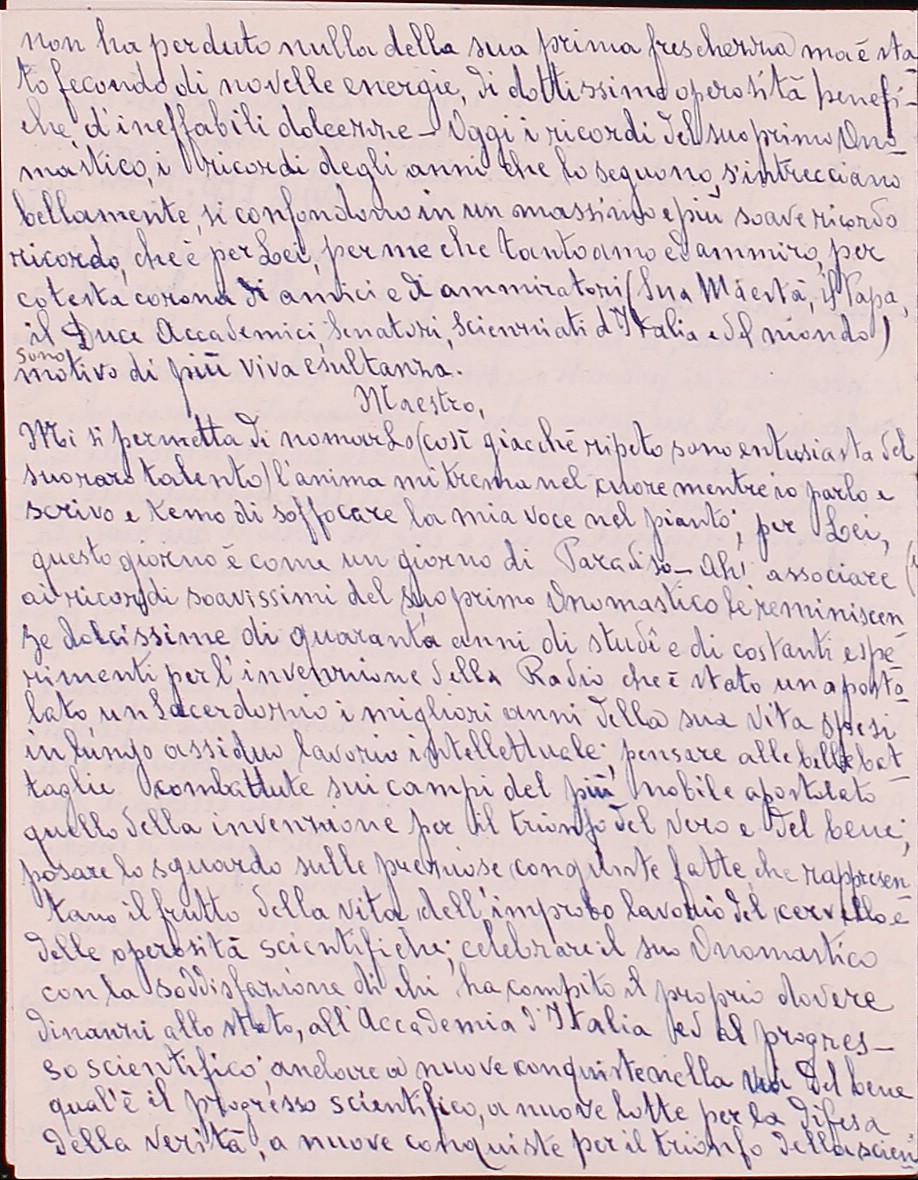 non ha perduto nulla della sua prima freschezza ma è sta
to fecondo di novelle energie, di dottissime operosità benefi-
che d'ineffabili dolcezze - Oggi i ricordi del suo primo Ono-
mastico, i ricordi degli anni che lo seguono, s'intrecciano
bellamente, si confondono in un massimo e più soave ricordo
ricordo, che è per Lei, per me che tanto amo ed ammiro, per
cotesta corona di amici e di ammiratori (Sua Maestà, il Papa,
il Duce Accademici, Senatori, Scienziati d'Italia e del mondo)
sono
motivo di più viva esultanza.
Maestro,
Mi si permetta di nomarLo (così giacchè ripeto sono entusiasta del
suo raro talento) l'anima mi trema nel cuore mentre io parlo e
scrivo e temo di soffocare la mia voce nel pianto; per Lei,
questo giorno è come un giorno di Paradiso - Ah! associare
ai ricordi soavissimi del suo primo Onomastico le reminiscen
ze dolcissime di quaranta anni di studî e di costanti espe-
rimenti per l'invenzione della Radio che è stato un aposto-
lato un Sacerdozio i migliori anni della sua vita spesi
in lungo assiduo lavorio intellettuale; pensare alle belle bat-
taglie combattute sui campi del più nobile apostolato
quello della invenzione per il trionfo del vero e del bene;
posare lo sguardo sulle preziose conquiste fatte che rappresen
tano il frutto della vita dell'improbo lavorio del cervello e
delle operosità scientifiche; celebrare il suo Onomastico
con la soddisfazione di chi ha compito il proprio dovere
dinanzi allo stato, all'Accademia d'Italia ed al progres-
so scientifico; andare a nuove conquiste nella via del bene
qual'è il progresso scientifico, a nuove lotte per la difesa
della verità, a nuove conquiste per il trionfo della scien